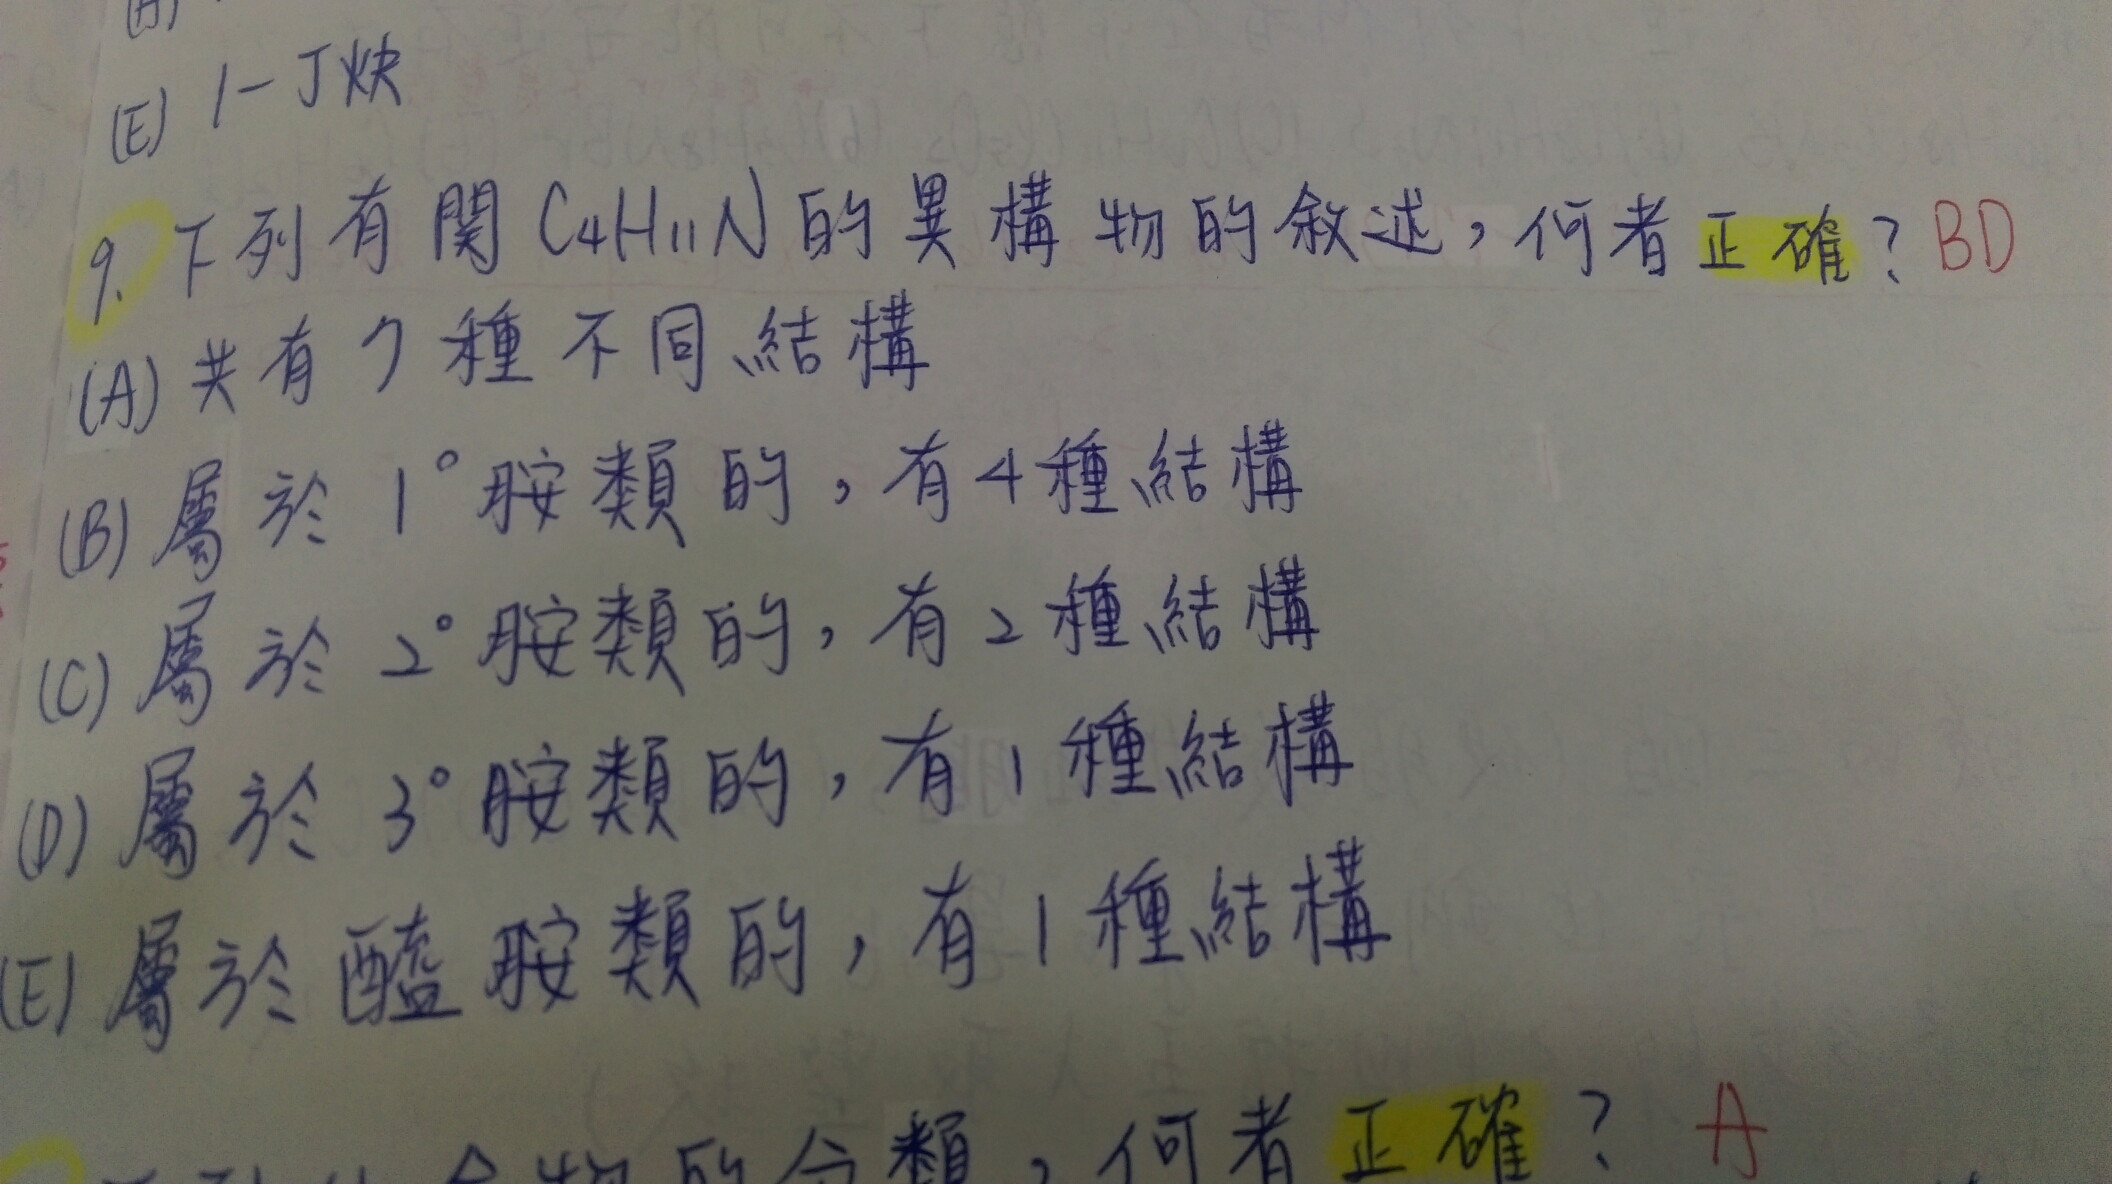 (E) 1-丁炔
9. 下列有関C4H11N的異構物的敘述，何者正確？BD
(A) 共有7種不同結構
(B) 屬於1°胺類的，有4種結構
(C) 屬於2°胺類的，有2種結構
(D) 屬於3°胺類的，有1種結構
(E) 屬於醯胺類的，有1種結構
合物的分類，何者正確？A